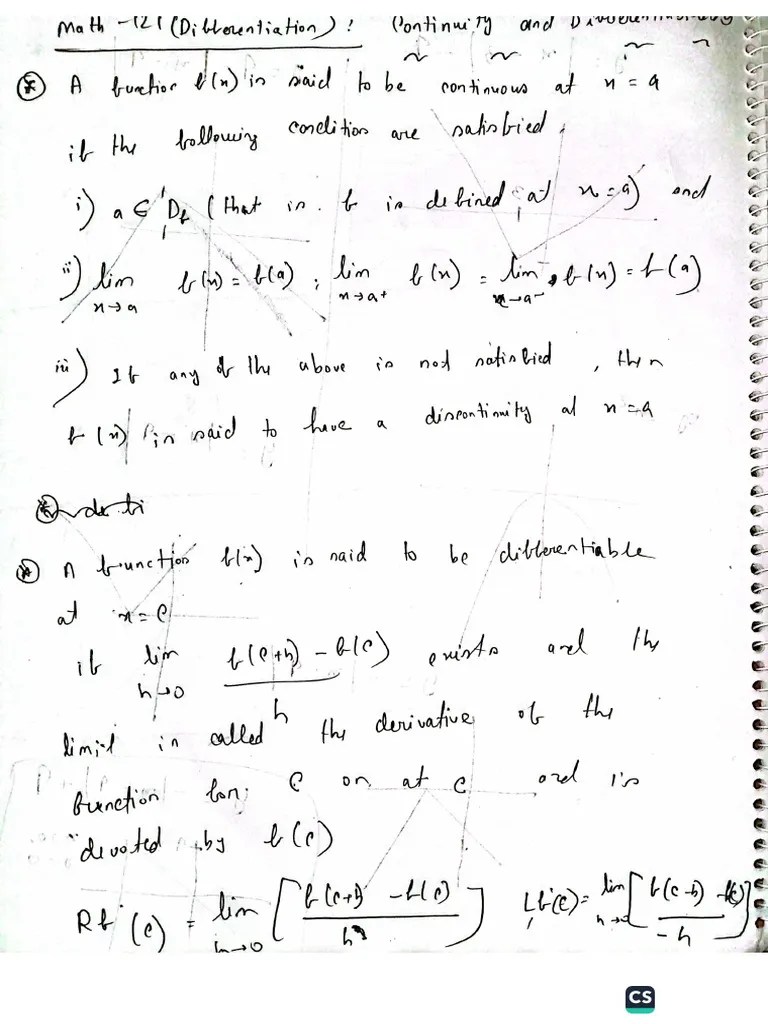 Math -121 (Differentiation) : Continuity and Differentiability
* A function f(x) is said to be continuous at x = a
if the following condition are satisfied.
i) a ∈ Df (that is. f is defined at x = a) and
ii) lim x→a f(x) = f(a) ; lim x→a+ f(x) = lim x→a- f(x) = f(a)
iii) If any of the above is not satisfied, then
f(x) is said to have a discontinuity at x = a
* A function f(x) is said to be differentiable
at x = c
if lim h→0 f(c+h) - f(c) / h exists and the
limit is called the derivative of the
function for c on at c and is
devoted by f(c)
Rf'(c) = lim h→0 [f(c+h) - f(c) / h] Lf'(c) = lim h→0 [f(c-h) - f(c) / -h]
CS